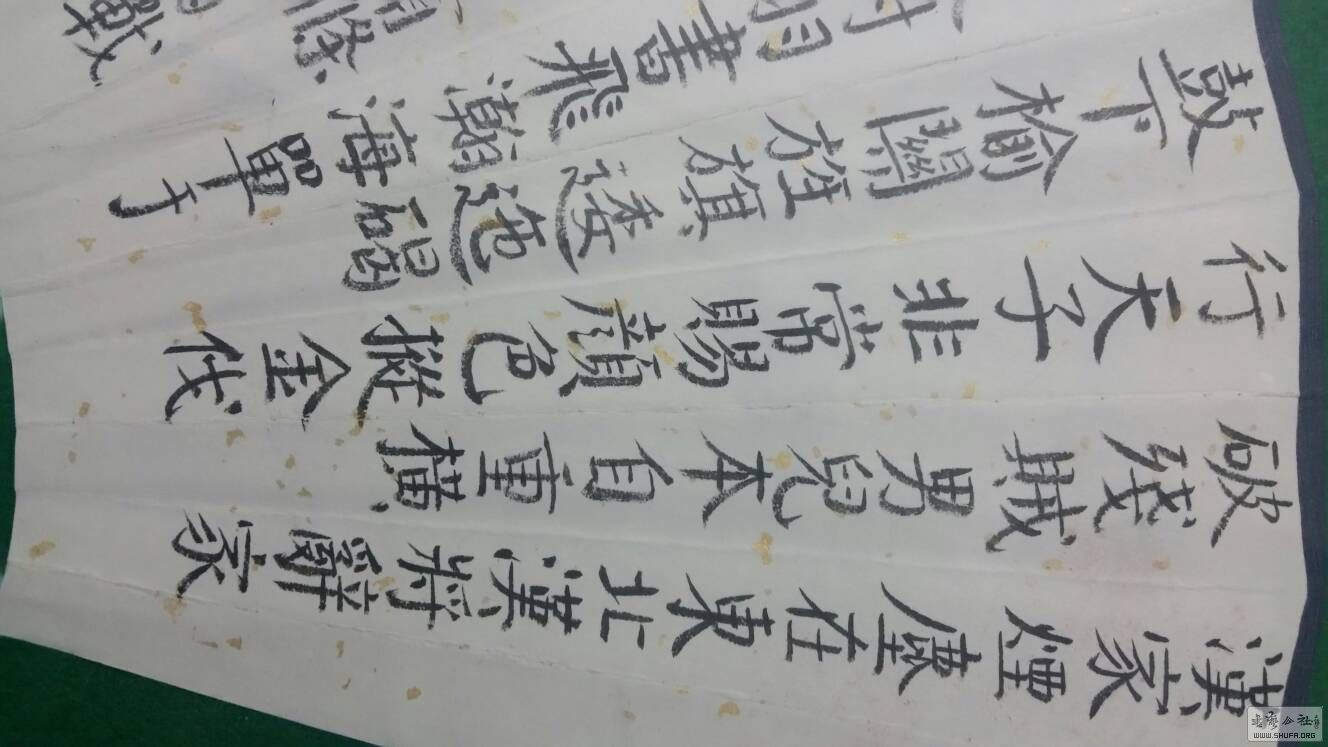 漢家煙塵在東北漢將辭家
破殘賊男兒本自重橫
行天子非常賜顏色摐金伐
鼓下榆關旌旗逶迤碣
羽書飛瀚海單于
條
戰
WWW.SHUFA.ORG